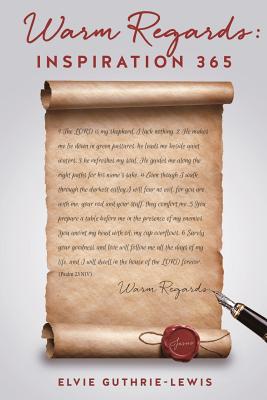 Warm Regards:
INSPIRATION 365
1 The LORD is my shepherd, I lack nothing. 2 He makes
me lie down in green pastures, he leads me beside quiet
waters, 3 he refreshes my soul. He guides me along the
right paths for his name's sake. 4 Even though I walk
through the darkest valley, I will fear no evil, for you are
with me; your rod and your staff, they comfort me. 5 You
prepare a table before me in the presence of my enemies.
You anoint my head with oil; my cup overflows. 6 Surely
your goodness and love will follow me all the days of my
life, and I will dwell in the house of the LORD forever.
(Psalm 23 NIV)
Warm Regards,
Jesus
ELVIE GUTHRIE-LEWIS